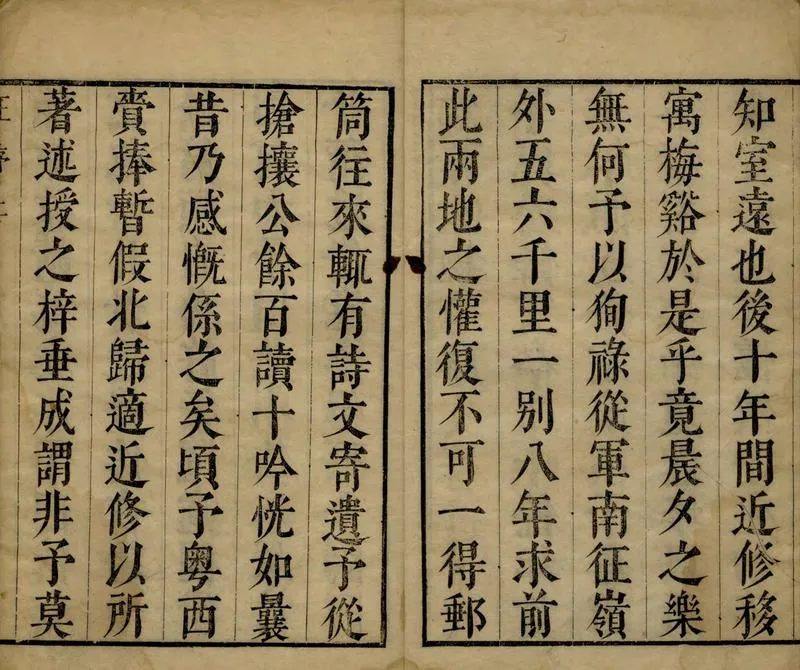 知室遠也後十年間近修移
寓梅谿於是乎竟晨夕之樂
無何予以狥祿從軍南征嶺
外五六千里一別八年求前
此兩地之懽復不可一得郵
筒往來輒有詩文寄遺予從
搶攘公餘百讀十吟恍如曩
昔乃感慨係之矣頃予粤西
賫捧暫假北歸適近修以所
著述授之梓垂成謂非予莫